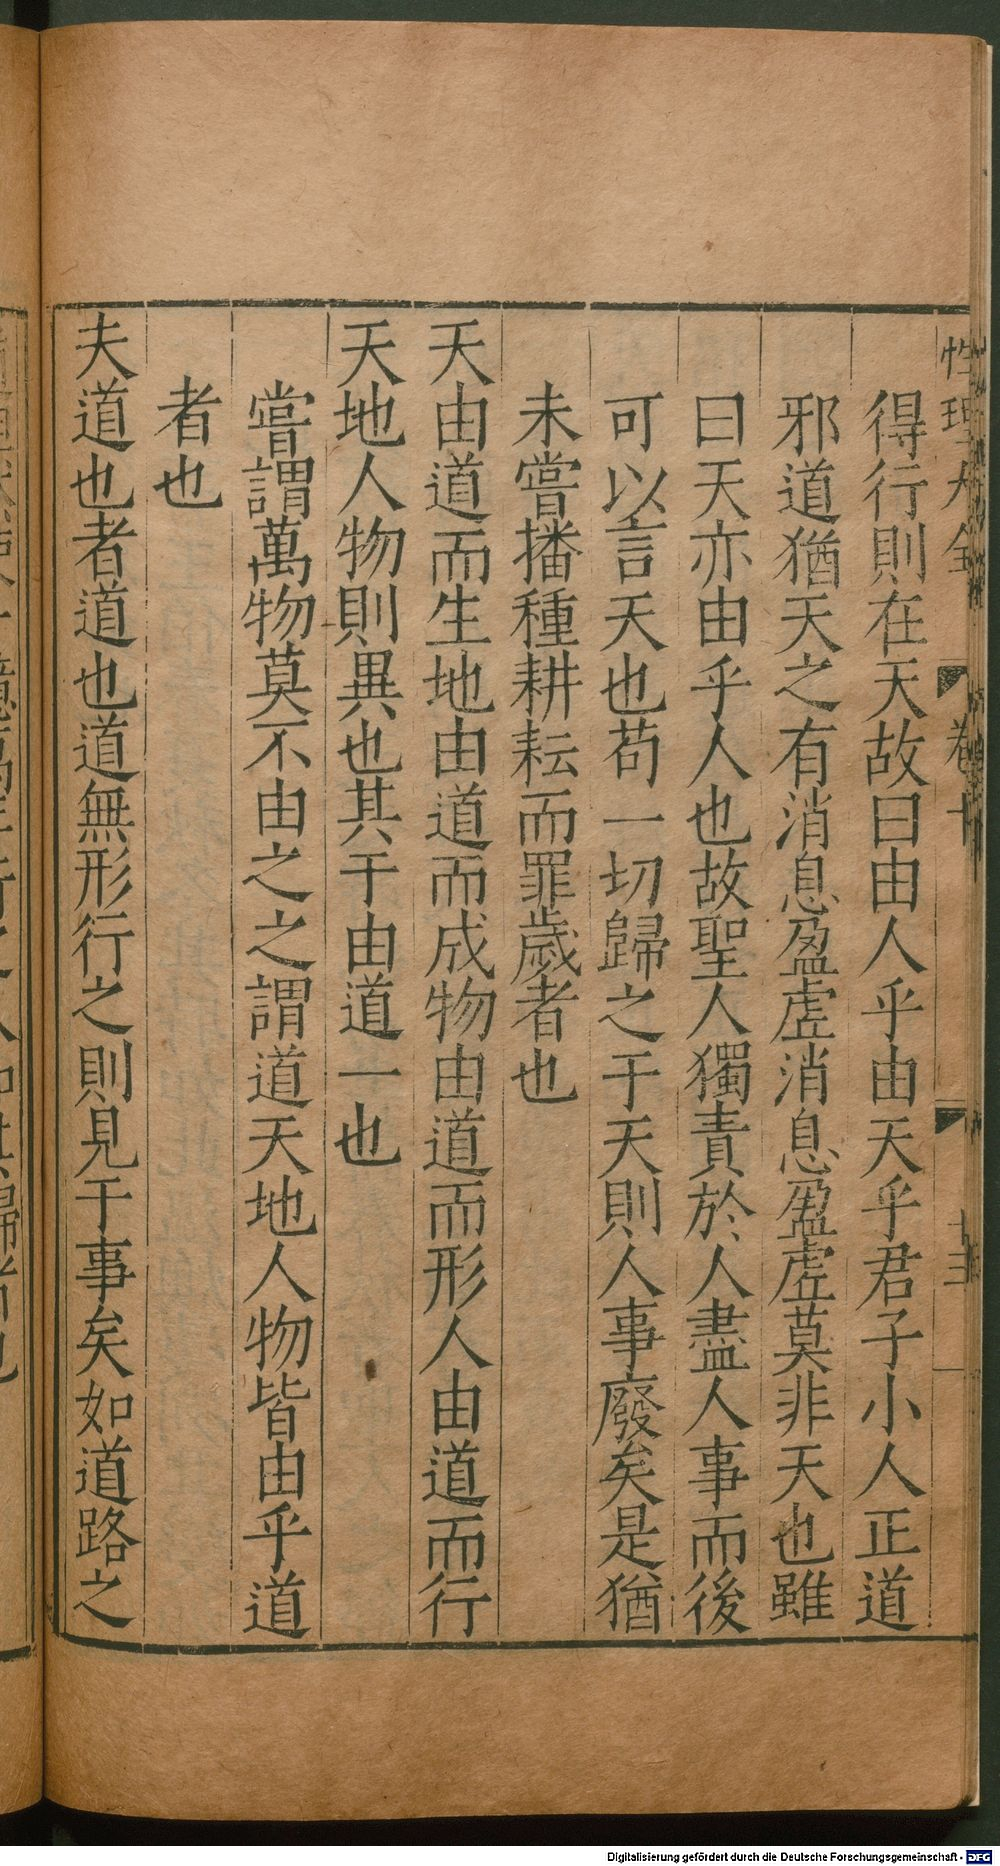 性理大全 卷十 十三
得行則在天故曰由人乎由天乎君子小人正道
邪道猶天之有消息盈虛消息盈虛莫非天也雖
曰天亦由乎人也故聖人獨責於人盡人事而後
可以言天也苟一切歸之于天則人事廢矣是猶
未嘗播種耕耘而罪歲者也
天由道而生地由道而成物由道而形人由道而行
天地人物則異也其于由道一也
嘗謂萬物莫不由之之謂道天地人物皆由乎道
者也
夫道也者道也道無形行之則見于事矣如道路之
Digitalisierung gefördert durch die Deutsche Forschungsgemeinschaft - DFG